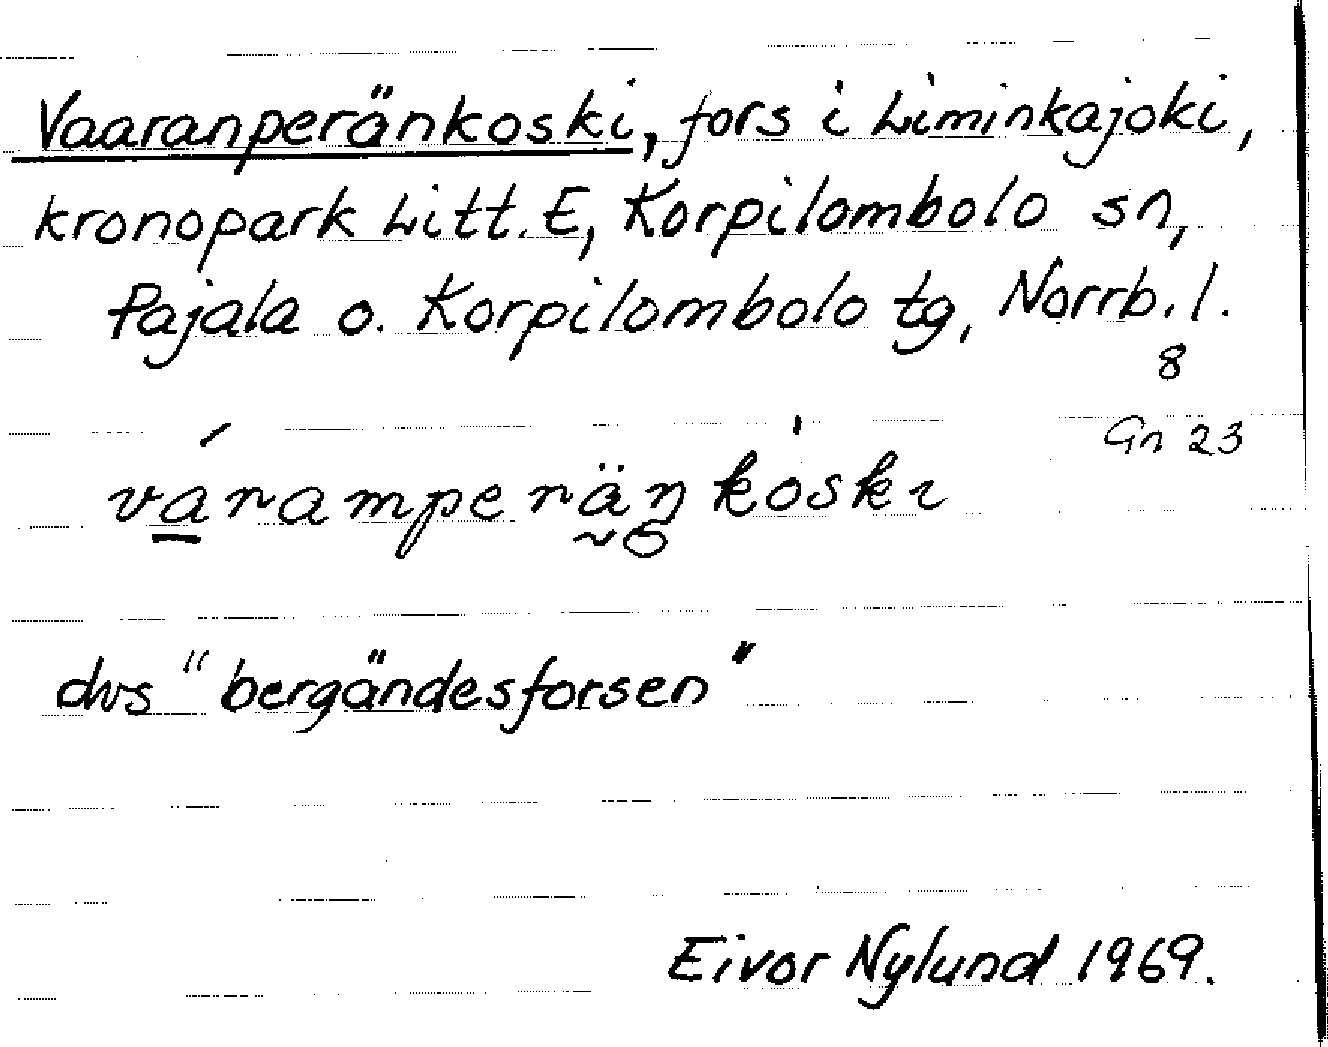 Vaaranperänkoski, fors i Liminkajoki,
kronopark Litt. E, Korpilombolo sn,
Pajala o. Korpilombolo tg, Norrb. l.
8
Gn 23
váramperäŋkoski
dvs "bergändesforsen"
Eivor Nylund 1969.